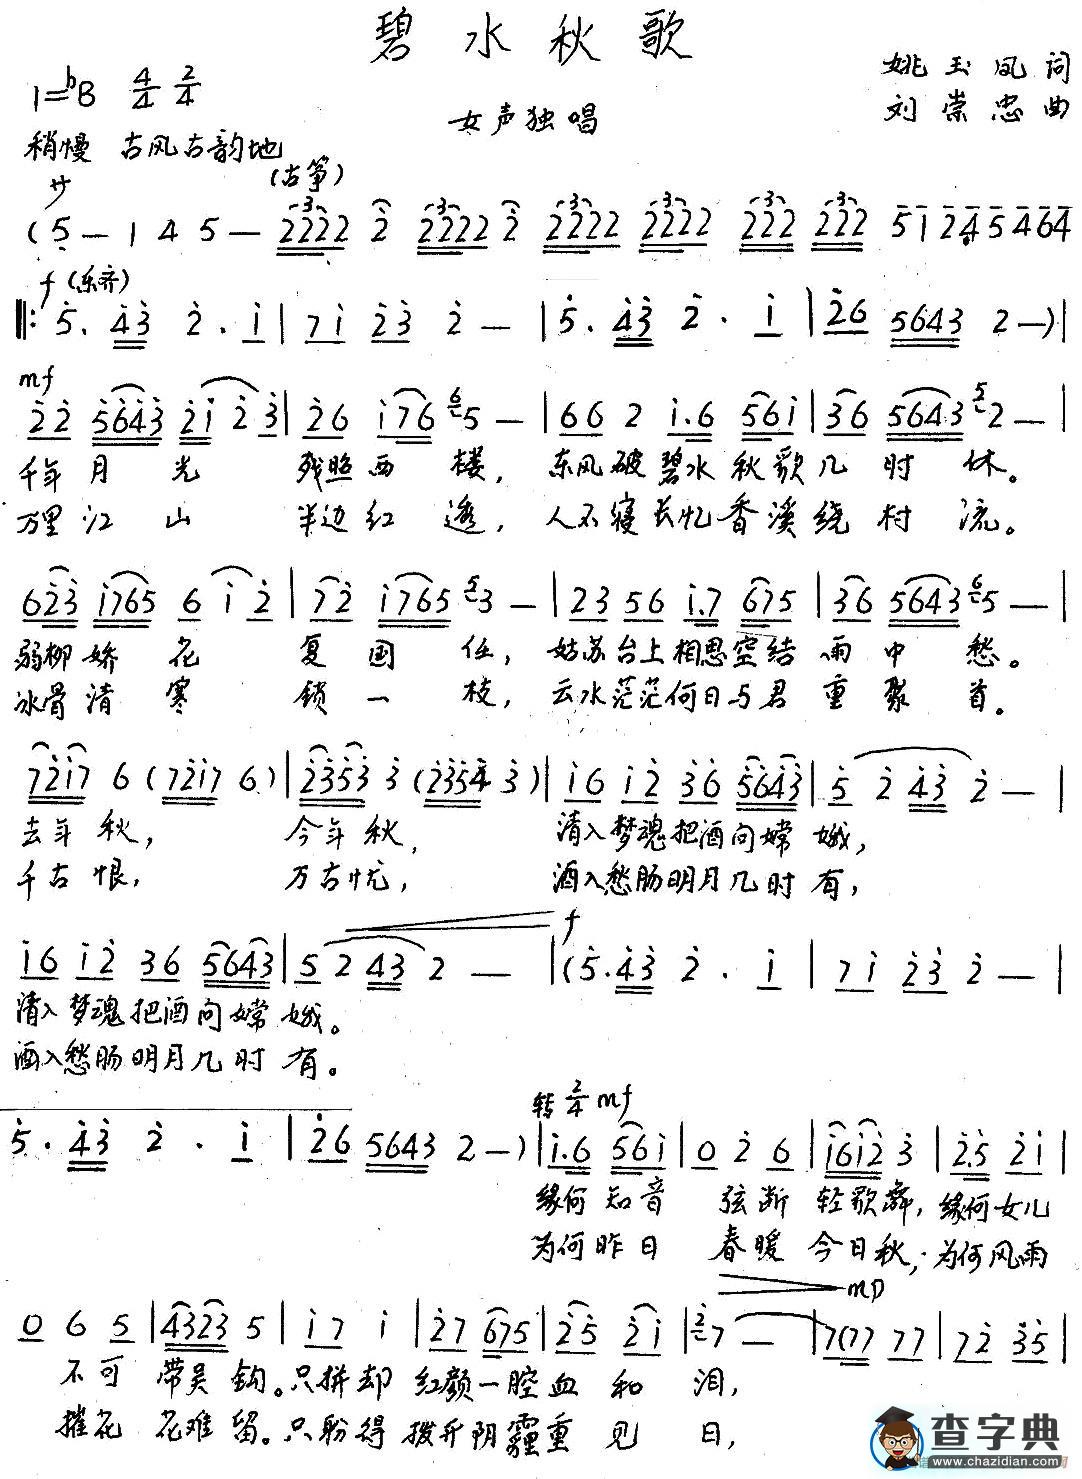 碧水秋歌
姚玉凤 词
1=♭B 4/4 2/4
女声独唱
刘崇忠 曲
稍慢 古风古韵地
(古筝)
サ
(5 — 1 4 5 — 2222 2 2222 2 2222 2222 222 222 5 1 2 4 5 4 6 4
f (乐齐)
‖: 5 . 43 2 . 1 | 71 23 2 — | 5 . 43 2 . 1 | 26 5643 2 — ) |
mf
22 5643 21 2 3 | 26 176 5 — | 66 2 1.6 561 | 36 5643 2 — |
千年月光 残照西楼, 东风破碧水秋歌几时休。
万里江山 半边红透, 人不寝长忆香溪绕村流。
623 1765 6 1 2 | 72 1765 3 — | 23 56 1.7 675 | 36 5643 5 — |
弱柳娇花 复国任, 姑苏台上相思空结雨中愁。
冰骨清寒 锁一枝, 云水茫茫何日与君重聚首。
7217 6 (7217 6) | 2353 3 (2354 3) | 16 12 36 5643 | 5 2 43 2 — |
去年秋, 今年秋, 清入梦魂把酒向嫦娥,
千古恨, 万古忧, 酒入愁肠明月几时有,
f
16 12 36 5643 | 5 2 43 2 — | (5.43 2 . 1 | 71 23 2 — |
清入梦魂把酒向嫦娥。
酒入愁肠明月几时有。
转 2/4 mf
5 . 43 2 . 1 | 26 5643 2 — ) | 1.6 561 | 0 2 6 | 1612 3 | 2.5 21 |
缘何知音 弦断轻歌舞, 缘何女儿
为何昨日 春暖今日秋, 为何风雨
mp
0 6 5 | 4323 5 | 17 1 | 27 675 | 25 21 | 7 — | 7(77 77 | 72 35 |
不可带吴钩。只拼却红颜一腔血和泪,
摧花花难留。只盼得拨开阴霾重见日,
查字典
www.chazidian.com